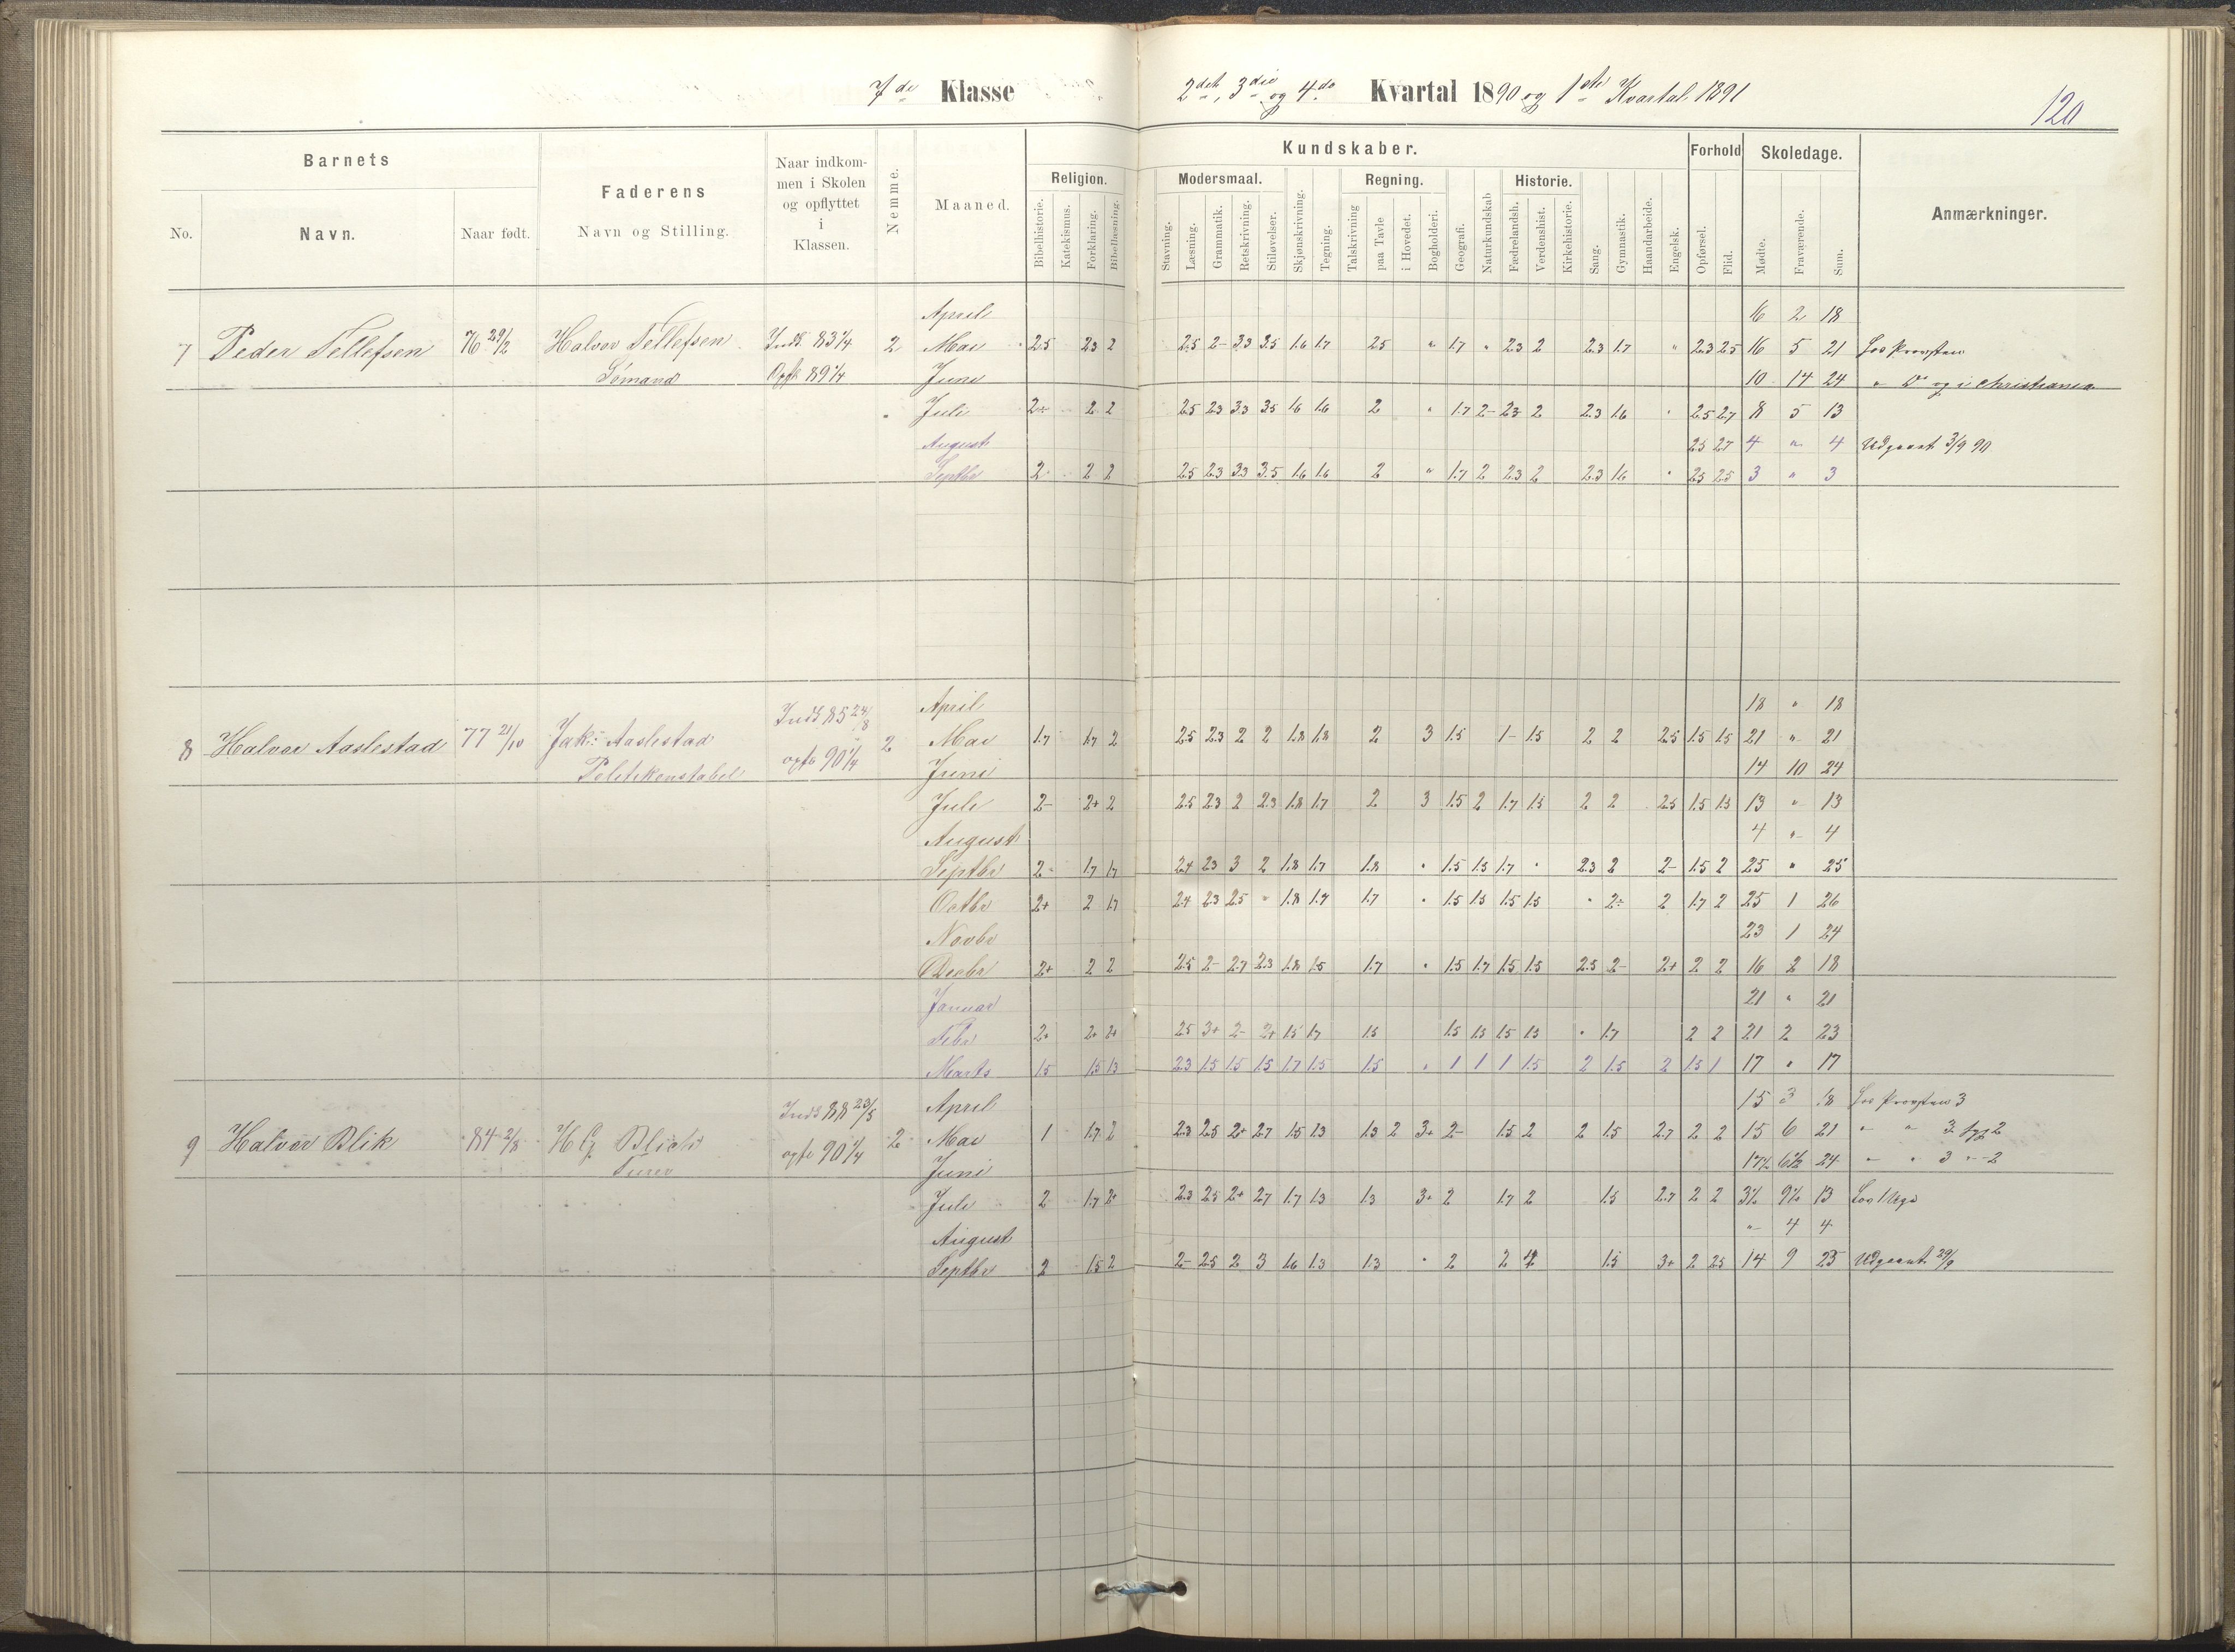 7de Klasse 2det, 3die og 4de Kvartal 1890 og 1ste Kvartal 1891
120
Barnets
Faderens
Naar indkommen i Skolen og opflyttet i Klassen.
Nemme.
Maaned.
Kundskaber.
Forhold
Skoledage.
Anmærkninger.
No.
Navn.
Naar født.
Navn og Stilling.
Religion.
Modersmaal.
Regning.
Historie.
Bibelhistorie.
Katekismus.
Forklaring.
Bibellæsning.
Stavning.
Læsning.
Grammatik.
Retskrivning.
Stiløvelser.
Skjønskrivning.
Tegning.
Talskrivning
paa Tavle
i Hovedet.
Bogholderi.
Geografi.
Naturkundskab
Fædrelandsh.
Verdenshist.
Kirkehistorie.
Sang.
Gymnastik.
Haandarbeide.
Engelsk.
Opførsel.
Flid.
Mødte.
Fraværende.
Sum.
April 16 2 18
7 Peder Tellefsen 76 29/2 Halvor Tellefsen Inds 83 1/4 2 Mai 2.5 2.3 2 2.5 2- 3.3 3.5 1.6 1.7 2.5 " 1.7 " 2.3 2 2.3 1.7 " 2.3 2.5 16 5 21 hos Provsten
Sømand Opft 89 1/4 Juni 10 14 24 " Do og i Christiania
Juli 2- 2 2 2.5 2.3 3.3 3.5 1.6 1.6 2 " 1.7 2- 2.3 2 2.3 1.6 " 2.5 2.7 8 5 13
August 2.5 2.7 4 " 4 Udgaat 3/9 90
Septbr 2 2 2 2.5 2.3 3.3 3.5 1.6 1.6 2 " 1.7 2 2.3 2 2.3 1.6 " 2.5 2.5 3 " 3
April 18 " 18
8 Halvor Aaslestad 77 21/10 Jak: Aaslestad Inds 85 24/8 2 Mai 1.7 1.7 2 2.5 2.3 2 2 1.8 1.8 2 3 1.5 1- 1.5 2 2 2.5 1.5 1.5 21 " 21
Politikonstabel opft 90 1/4 Juni 14 10 24
Juli 2- 2+ 2 2.5 2.3 2 2.3 1.8 1.7 2 3 1.5 2 1.7 1.5 2 2 2.5 1.5 1.5 13 " 13
August 4 " 4
Septbr 2- 1.7 1.7 2.4 2.3 3 2 1.8 1.7 1.8 " 1.5 1.5 1.7 " 2.3 2 2- 1.5 2 25 " 25
Octbr 2+ 2 1.7 2.4 2.3 2.5 " 1.8 1.7 1.7 " 1.5 1.5 1.5 1.5 " 2- 2 1.7 2 25 1 26
Novbr 23 1 24
Decbr 2+ 2 2 2.5 2- 2.7 2.3 1.8 1.5 1.7 " 1.5 1.7 1.5 1.5 2.5 2- 2+ 2 2 16 2 18
Januar 21 " 21
Febr 2+ 2+ 2+ 2.5 3+ 2- 2+ 1.5 1.7 1.5 1.5 1.5 1.5 1.5 " 1.7 2 2 21 2 23
Marts 1.5 1.5 1.3 2.3 1.5 1.5 1.5 1.7 1.5 1.5 " 1 1 1 1.5 2 1.5 2 1.5 1 17 " 17
April 15 3 18 hos Provsten 3
9 Halvor Blik 84 2/8 H G Blich Inds 88 23/5 2 Mai 1 1.7 2 2.3 2.5 2+ 2.7 1.5 1.3 1.3 2 3+ 2- 1.5 2 2 1.5 2.7 2 2 15 6 21 " " 3 syg 2
opft 90 1/4 Juni 17½ 6½ 24 " " 3 " 2
Juli 2 1.7 2+ 2.3 2.5 2+ 2.7 1.7 1.3 1.3 3+ 2 1.7 2 1.5 2.7 2 2 3½ 9½ 13
August " 4 4
Septbr 2 1.5 2 2- 2.5 2 3 1.6 1.3 1.3 " 2 2 1.5 3+ 2 2.5 14 9 23 Udgaat 29/9